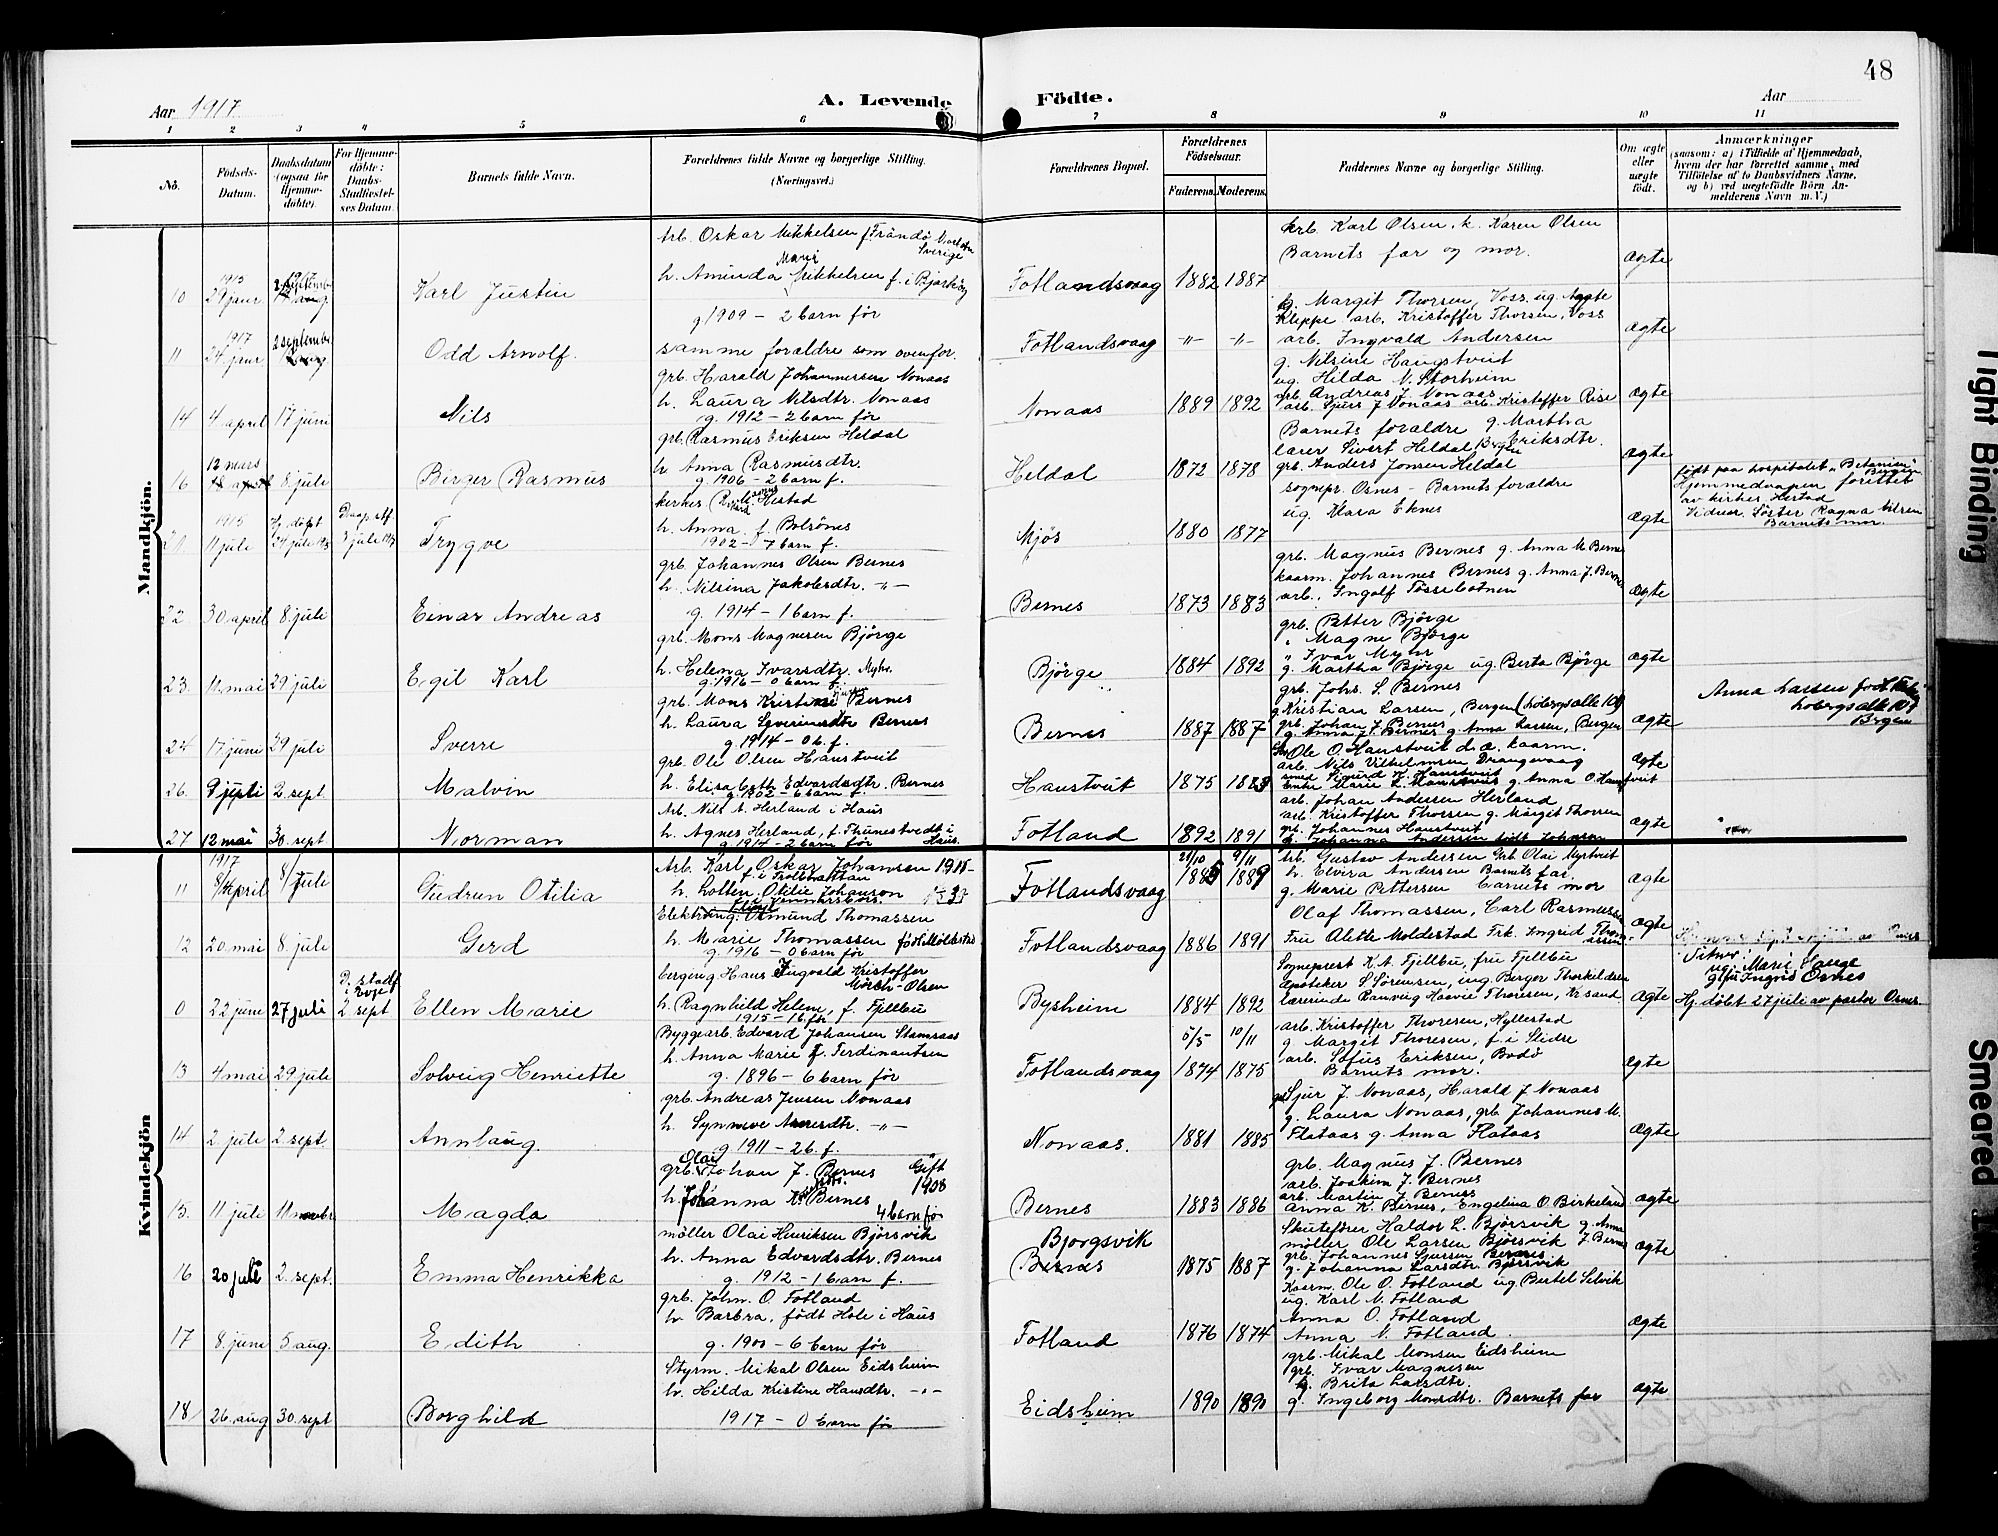 48
Aar 1917
A. Levende Födte.
Aar
1 2 3 4 5 6 7 8 9 10 11
No.
Födsels-Datum.
Daabsdatum (ogsaa for Hjemme-döbte).
For Hjemme-döbte: Daabs-Stadfæstel-ses Datum.
Barnets fulde Navn.
Forældrenes fulde Navne og borgerlige Stilling. (Næringsvei.)
Forældrenes Bopæl.
Forældrenes Födselsaar.
Faderens. Moderens.
Faddernes Navne og borgerlige Stilling.
Om ægte eller uægte født.
Anmærkninger
(saasom: a) i Tilfælde af Hjemmedaab, hvem der har forrettet samme, med Tilföielse af to Daabsvidners Navne, og b) ved uægtefödte Börn Anmelderens Navn m. V.)
Mandkjön.
Arb. Oskar Mikkelsen f. Trändö
Sverige
h. Aminda Marie Mikkelsen f. i
g. 1909 – 2 barn før
10 1915 29 janr Karl Justin
Fotlandsvaag 1882 1887
arb. Karl Olsen, k. Karen Olsen
Barnets far og mor. ægte
11 1917 24 janr 2 septembr Odd Arnolf.
samme forældre som ovenfor.
Fotlandsvaag -"- -"-
g. Margit Thorsen, Voss. ug. Agate
Kleppe arb. Kristoffer Thorsen, Voss
arb. Ingvald Andersen ægte
g. Nilsine Haugstveit
14 4 april 17 juni Nils
grb. Harald Johannessen Nonaas
h. Laura Nilsdtr. Nonaas
g. 1912 – 2 barn før
Nonaas 1889 1892
ug. Hilda N. Storheim
grb. Andreas J. Nonaas
arb. Sjurs J Nonaas arb. Kristoffer Rise
ægte
16 12 mars 8 juli Birger Rasmus
grb. Rasmus Eriksen Heldal
h. Anna Rasmusdtr.
g. 1906 – 2 barn f.
Heldal 1872 1878
Barnets forældre g. Martha Eriksdtr.
lærer Sivert Heldal
grb. Anders Jonsen Heldal
ægte
født paa hospitalet "Betanien" Bergen
21 1915 11 juli Hj. døpt 24 juli Daap stf. 3 juli Trygve
Hestad
h. Anna f. Bolsönes
1902 – 7 barn f.
Mjøs 1880 1877
sognepr. Osnes – Barnets forældre
ug. Klara Eknes
ægte
Hjemmedaapen forettet
av kirkes. Hestad
Vidner. Söster Ragna Nilsen
Barnets mor.
22 30 april 8 juli Einar Andreas
grb. Johannes Olsen Bernes
h. Nilsina Jakobsdtr. -"-
g. 1914 – 1 barn f.
Bernes 1873 1883
grb. Magnus Bernes g. Anna M. Bernes
kaarm. Johannes Bernes g. Anna J. Bernes
arb. Ingolf Tössebotnen ægte
23. 11 mai 29 juli Egil Karl
grb. Mons Magnesen Björge
h. Helena Ivarsdtr. Myhr.
g. 1916 – 0 barn f.
Björge 1884 1892
grb. Petter Björge
" Magne Björge
" Ivar Myhr
g. Martha Björge ug. Berta Björge ægte
24 17 juni 29 juli Sverre
grb. Mons Bernes
h. Laura Bernes
g. 1914 – 0 b. f.
Bernes 1887 1887
grb. Johs. S. Bernes
g Kristian Larsen, Bergen
grb. Johan J. Bernes
g. Anna J. Bernes g. Anna Larsen, Bergen ægte
Anna Larsen
Bergen
26. 9 juli 2. sept. Malvin
grb. Ole Olsen Haustveit
h. Elisabeth Edvardsdtr. Bernes
g. 1902 – 6 barn f.
Haustveit 1875 1883
Ole O. Haustveit d.æ. kaarm.
arb. Nils Vilhelmsen Drangevaag
Enke Marie g. Anna O Haustveit
ægte
27. 12 mai 30. sept Norman
Arb. Nils A. Herland i Haus
h. Agnes Herland, f. Thunestvedt i Haus.
g. 1914 – 2 barn før
Fotland 1892 1891
arb. Johan Andersen Herland
arb. Kristoffer Thorsen g. Margit Thorsen
grb. Johannes Haustveit
ægte
Kvindekjön
11 1917 8/4 april 8/juli Gudrun Otilia
Arb. Karl Oskar Johansen 1915 –
f. i Trollhättan
h. Lotten Otilie Johanson
Fotlandsvaag 21/10 1885 9/11 1889
Arb. Gustav Andersen Grb Olai Myrtveit
h. Elvira Andersen Barnets far
g. Marie Pettersen Barnets mor ægte
12 20 mai 8. juli Gerd
Elektroing. Osmund Thomassen
h. Marie Thomassen født Moldestad
g. 1916 – 0 barn før
Fotlandsvaag 1886 1891
Olaf Thomassen, Carl Rasmussen
Fru Alette Moldestad Frk. Ingrid Thomassen
ægte
0 22 juni 27 juli D. stadf. i Evje 2 sept Ellen Marie
berging Hans Ingvald Kristoffer
Mørch-Olsen
h. Ragnhild Helene, f. Fjellbu
1915 – 1 b. før
Bysheim 1884 1892
Sogneprest K.A. Fjellbu, fru Fjellbu
Apoteker S Sörensen, ing Berger Thorkildsen
Lærerinde Ranveig Haavie Thoresen, Kr.sand. ægte
Marie Hauge
Ingrid Osnes
Hj. döbt 27 juli av pastor Osnes
13 4 mai 29 juli Solveig Henriette
Byggearb. Edvard Johansen Stamsaas
h. Anna Marie f. Ferdinantsen
g. 1896 – 6 barn før
Fotlandsvaag 5/5 1874 10/11 1875
arb. Kristoffer Thoresen, Hyllestad
g. Margit Thoresen, f. i Slidre
arb. Sofus Eriksen, Bodö
Barnets mor. ægte
14 2. juli 2. sept. Annlaug.
grb. Andreas Jensen Nonaas
h. Synneve -"-
g 1911 – 2 b. f.
Nonaas. 1881 1885
Sjur J. Nonaas, Harald J Nonaas
g. Laura Nonaas, grb Johannes M.
Flataas g. Anna Flataas ægte
15. 11 juli 11 novbr Magda
grb. Olai Johan J. Bernes Gift 1908
h. Johanna Bernes
4 barn før
Bernes 1883 1886
grb. Magnus J. Bernes
arb. Joakim J. Bernes
arb. Martin J. Bernes
Anna K. Bernes, Engelina O. Birkeland ægte
16 20 juli 2. sept. Emma Henrikka
möller Olai Henriksen Björsvik
h. Anna Edvardsdtr. Bernes
g. 1912 – 1 barn f.
Bjorgsvik
Bernes 1875 1887
Skutefører Haldor L. Björsvik g. Anna J. Bernes
möller Ole Larsen Björsvik
grb. Johannes Sjursen Bernes
g. Johanna Larsdtr. Björsvik
ægte
17 8. juni 5 aug. Edith
grb. Johan. O. Fotland
h. Barbra, født Hole i Haus
g. 1900 – 6 barn før
Fotland 1876 1874
Kaarm. Ole O. Fotland ug Bertel Selvik
ug. Karl N. Fotland
Anna O. Fotland
Anna N. Fotland. ægte
18 26. aug 30. sept Borghild
Styrm. Mikal Olsen Eidsheim
h. Hilda Kristine Hansdtr. -"-
1917 – 0 barn før
Eidsheim 1890 1890
grb. Mikal Monsen Eidsheim
grb. Ivar Magnesen
g. Brita Larsdtr.
g. Ingeborg Monsdtr. Barnets far ægte
Tight Binding
Smeared